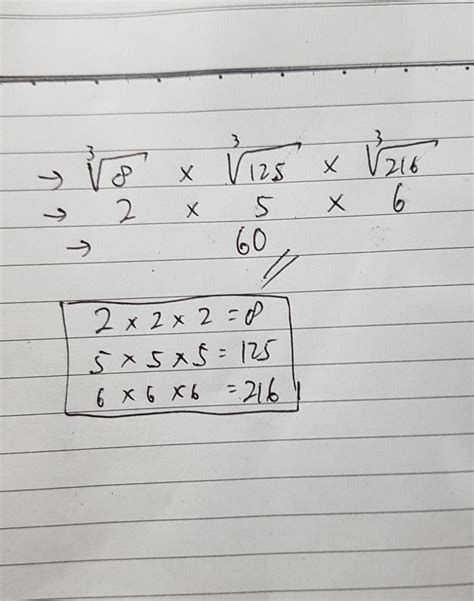 → ³√8 × ³√125 × ³√216
→ 2 × 5 × 6
→ 60 //
2 × 2 × 2 = 8
5 × 5 × 5 = 125
6 × 6 × 6 = 216